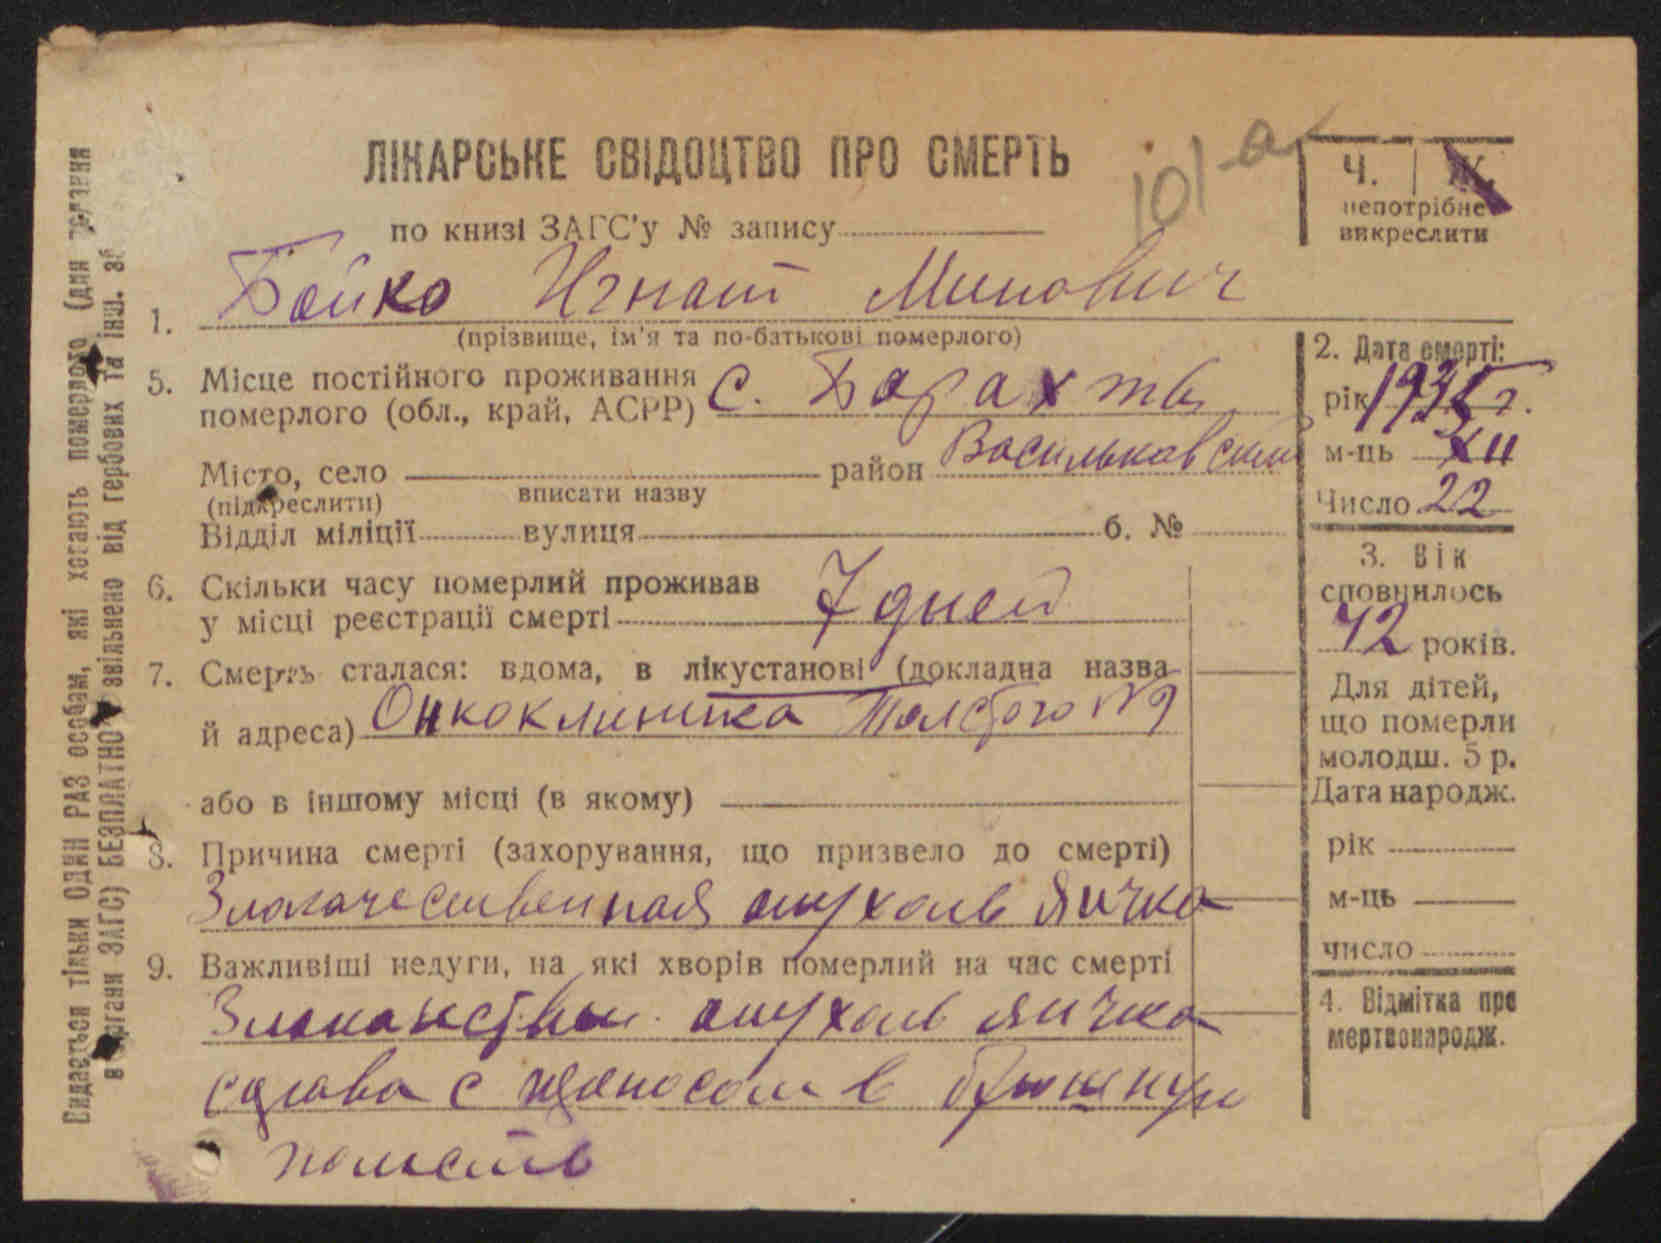 ЛІКАРСЬКЕ СВІДОЦТВО ПРО СМЕРТЬ
101-а
Ч. | Ж.
непотрібне
викреслити
по книзі ЗАГС'у № запису
1. Бойко Игнат Минович
(прізвище, ім'я та по-батькові померлого)
2. Дата смерті:
рік 1935 г.
м-ць XII
Число 22
3. Вік
сповнилось
42 років.
Для дітей,
що померли
молодш. 5 р.
Дата народж.
рік
м-ць
число
4. Відмітка про
мертвонародж.
5. Місце постійного проживання
померлого (обл., край, АСРР) с. Барахты
Місто, село район Васильковский
(підкреслити) вписати назву
Відділ міліції вулиця б. №
6. Скільки часу померлий проживав
у місці реєстрації смерті 7 дней
7. Смерть сталася: вдома, в лікустанові (докладна назва
й адреса) Онкоклиника Толстого №9
або в іншому місці (в якому)
8. Причина смерті (захорування, що призвело до смерті)
Злокачественная опухоль яичка
9. Важливіші недуги, на які хворів померлий на час смерті
опухоль яичка
справа с в брюшную
полость
Видається тільки ОДИН РАЗ особам, які ховають померлого (для подання
в органи ЗАГС) БЕЗПЛАТНО звільнено від гербових та інш. зб